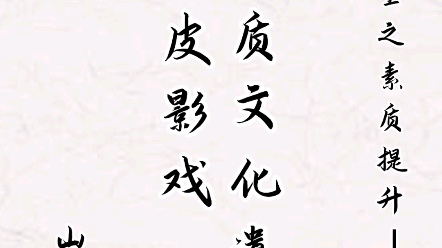 之素质提升
质文化
皮影戏